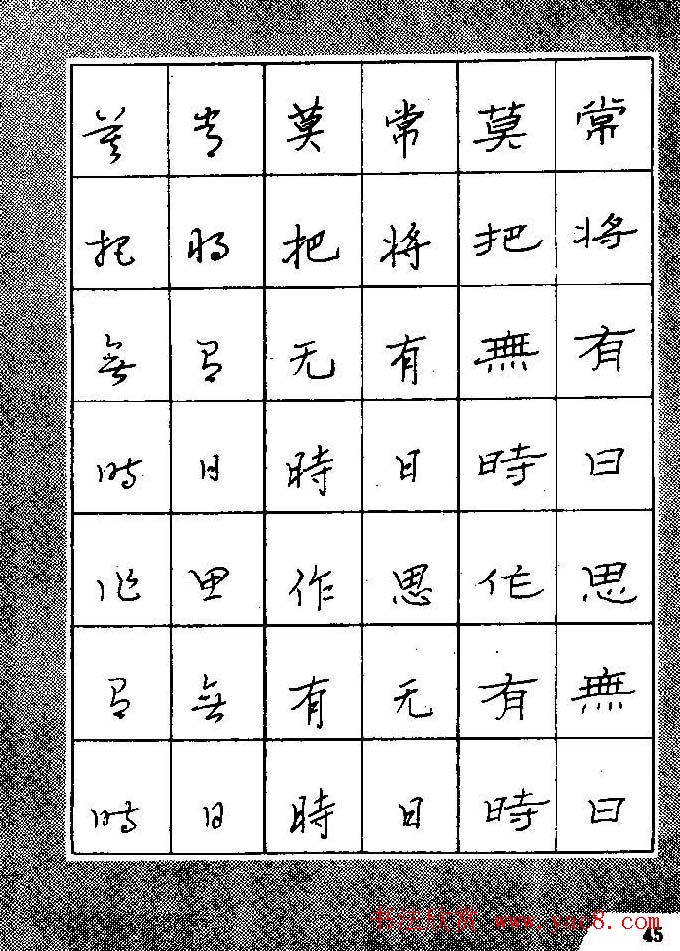 常将有日思無日
莫把無時作有時
常将有日思无日
莫把无時作有時
常将有日思無日
莫把無時作有時
书法欣赏 www.yac8.com
45